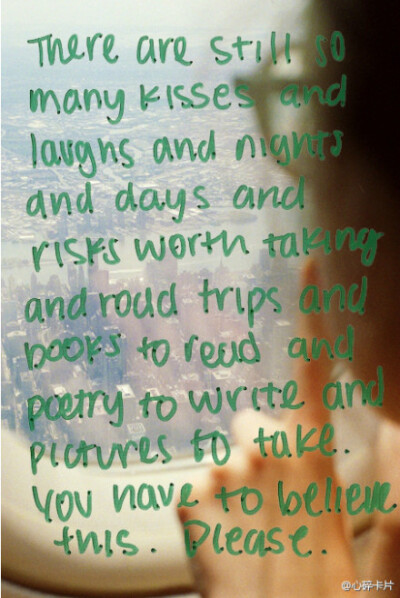 There are still so
many kisses and
laughs and nights
and days and
risks worth taking
and road trips and
books to read and
poetry to write and
pictures to take.
you have to believe
this. Please.
@心碎卡片